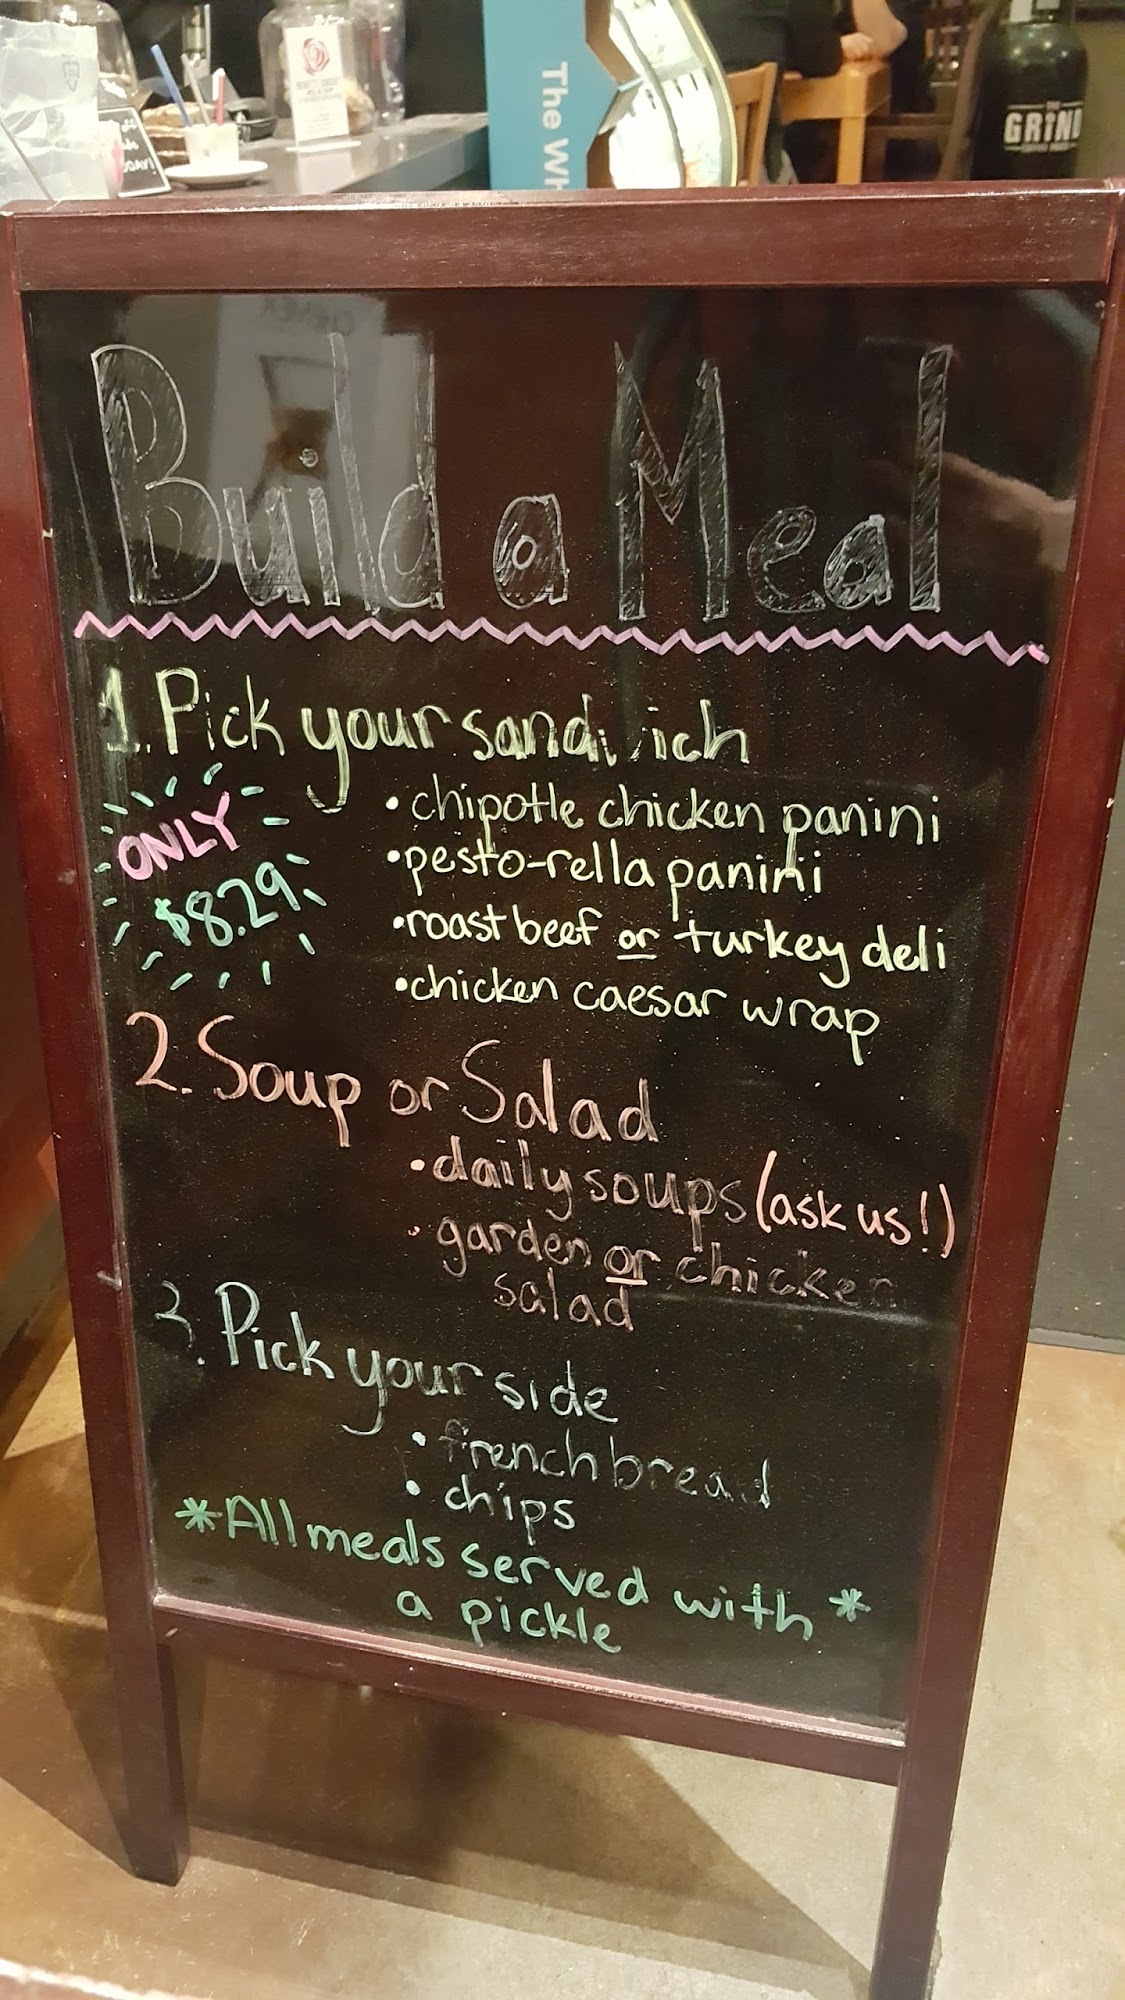 The Wh
GRIND
Build a Meal
1. Pick your sandwich
ONLY
$8.29
• chipotle chicken panini
• pesto-rella panini
• roast beef or turkey deli
• chicken caesar wrap
2. Soup or Salad
• daily soups (ask us!)
• garden or chicken
salad
3. Pick your side
• french bread
• chips
*All meals served with *
a pickle